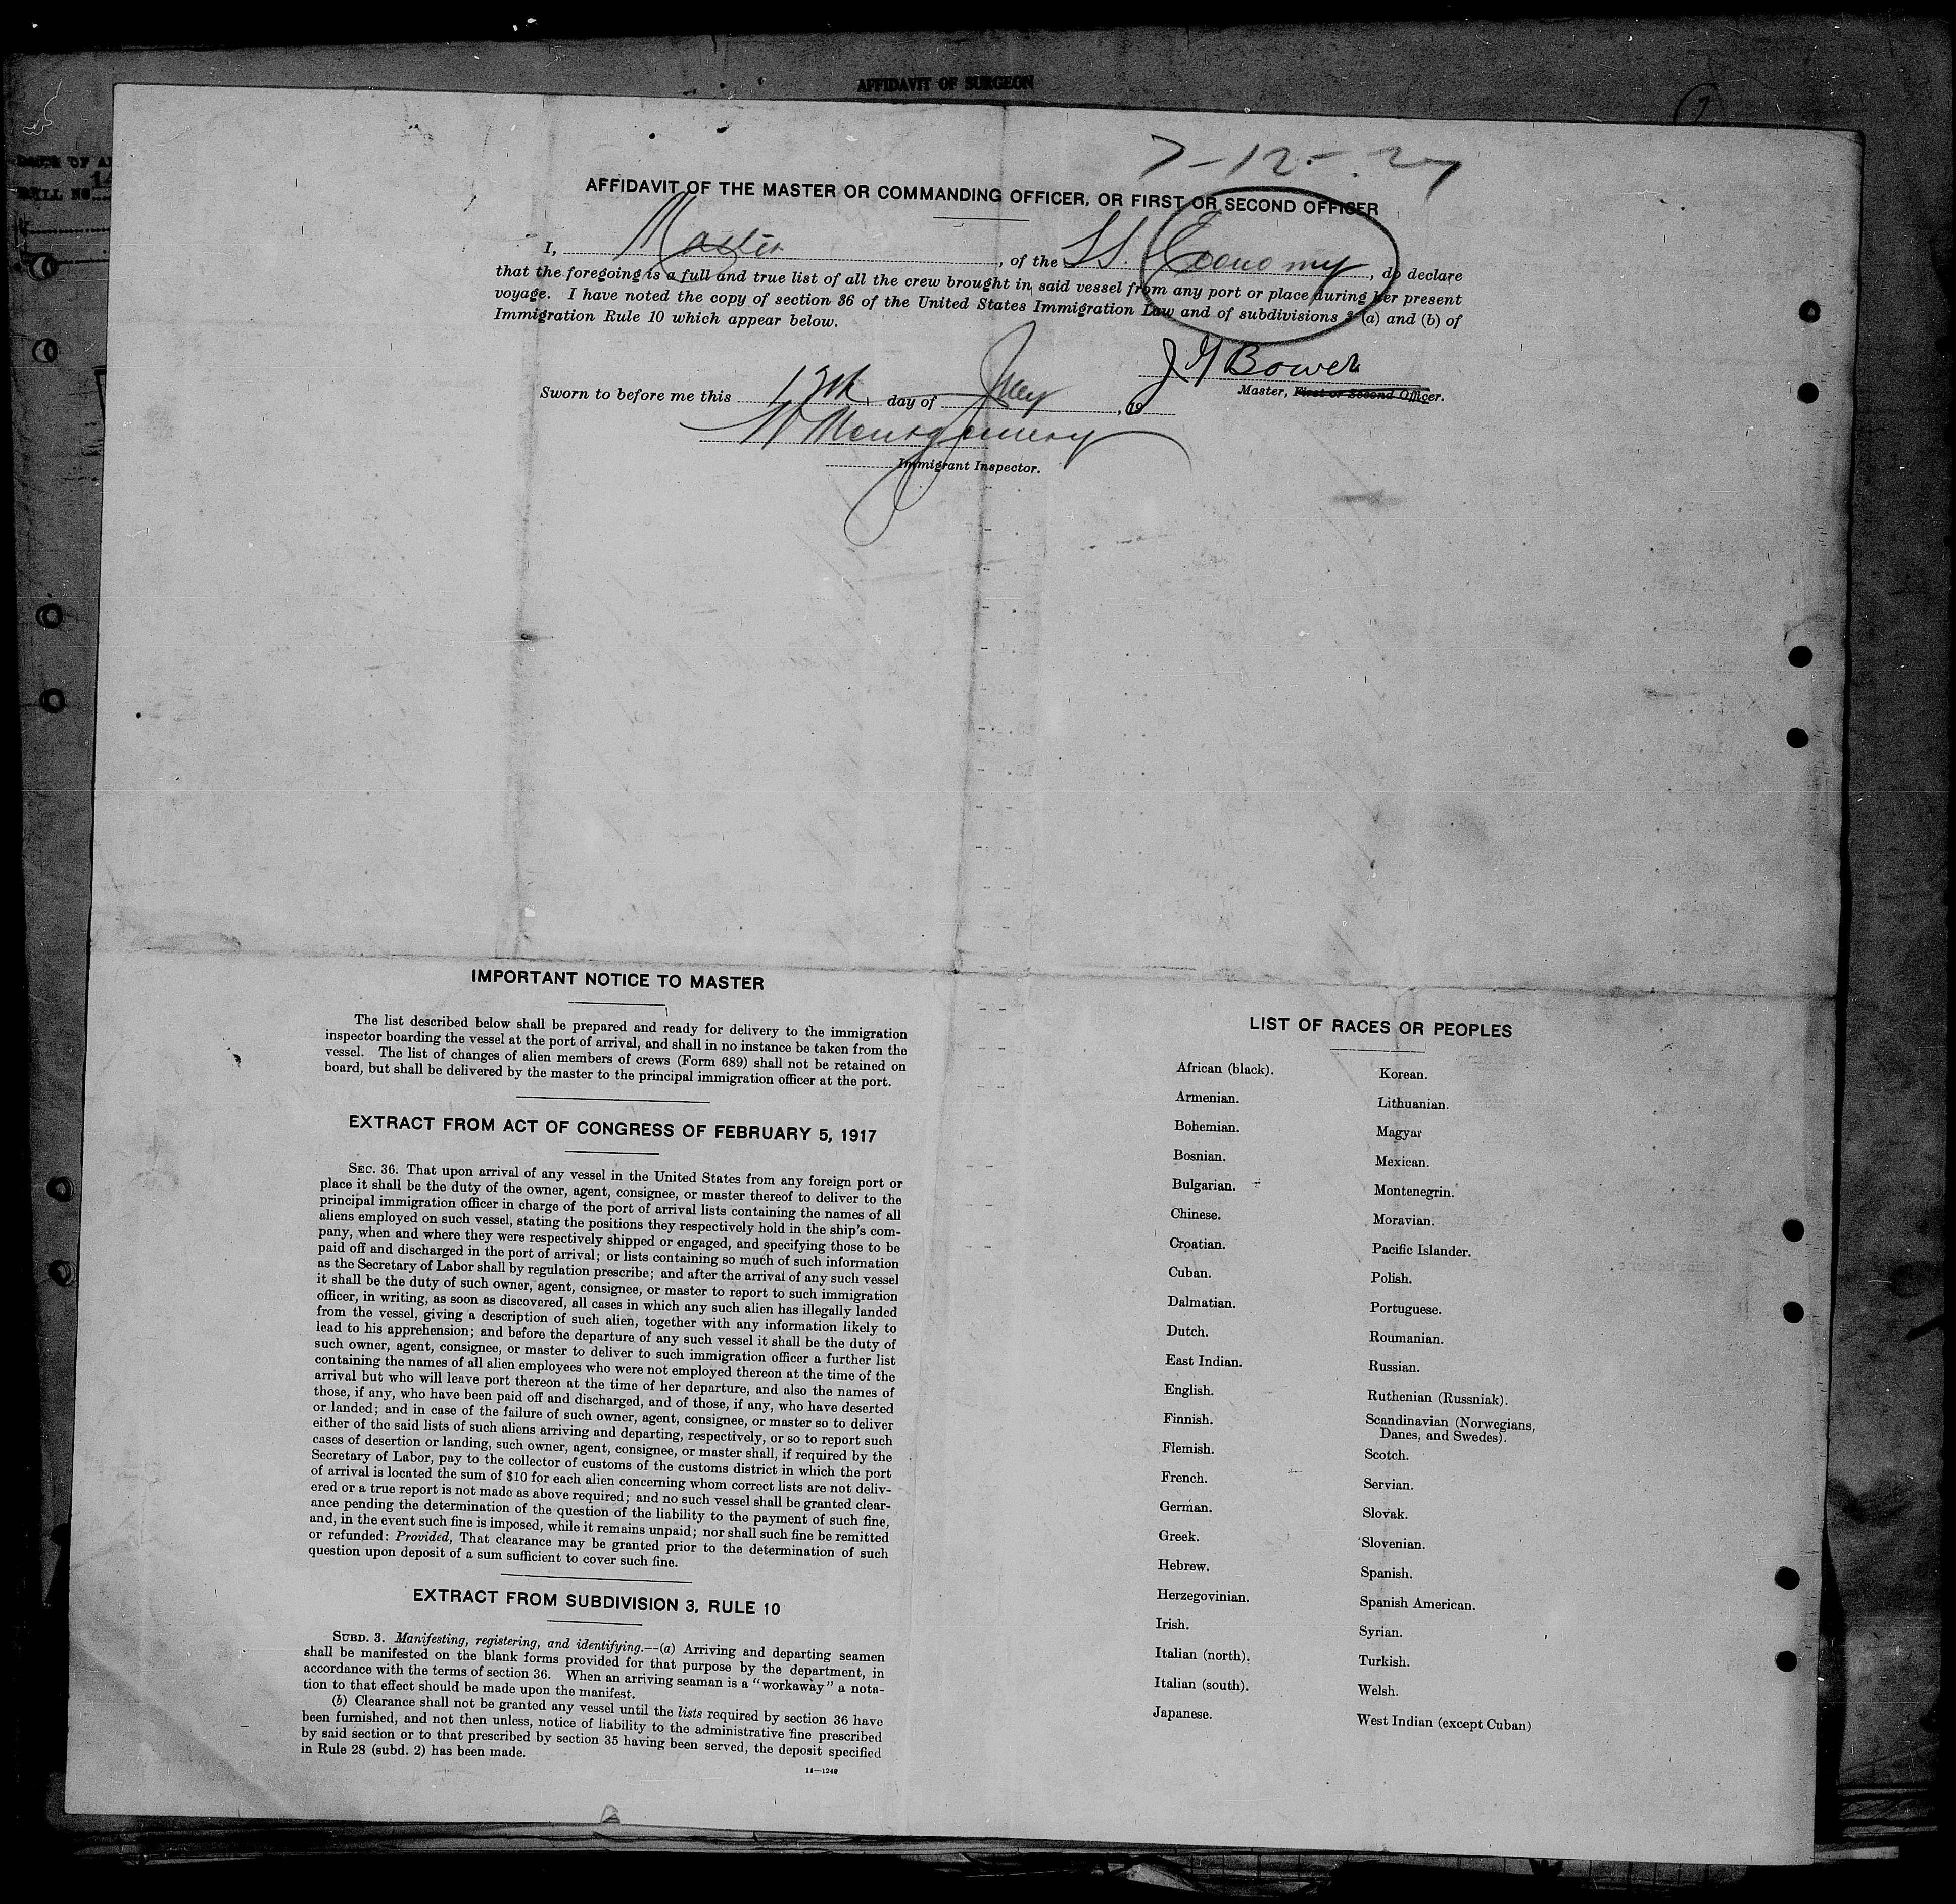 AFFIDAVIT OF SURGEON
7-12-27
AFFIDAVIT OF THE MASTER OR COMMANDING OFFICER, OR FIRST OR SECOND OFFICER
I, Master, of the SS. Economy, do declare
that the foregoing is a full and true list of all the crew brought in said vessel from any port or place during her present
voyage. I have noted the copy of section 36 of the United States Immigration Law and of subdivisions 3 (a) and (b) of
Immigration Rule 10 which appear below.
Master, First or Second Officer.
Sworn to before me this 12th day of July, 19
Montgomery
Immigrant Inspector.
IMPORTANT NOTICE TO MASTER
The list described below shall be prepared and ready for delivery to the immigration
inspector boarding the vessel at the port of arrival, and shall in no instance be taken from the
vessel. The list of changes of alien members of crews (Form 689) shall not be retained on
board, but shall be delivered by the master to the principal immigration officer at the port.
EXTRACT FROM ACT OF CONGRESS OF FEBRUARY 5, 1917
SEC. 36. That upon arrival of any vessel in the United States from any foreign port or
place it shall be the duty of the owner, agent, consignee, or master thereof to deliver to the
principal immigration officer in charge of the port of arrival lists containing the names of all
aliens employed on such vessel, stating the positions they respectively hold in the ship's com-
pany, when and where they were respectively shipped or engaged, and specifying those to be
paid off and discharged in the port of arrival; or lists containing so much of such information
as the Secretary of Labor shall by regulation prescribe; and after the arrival of any such vessel
it shall be the duty of such owner, agent, consignee, or master to report to such immigration
officer, in writing, as soon as discovered, all cases in which any such alien has illegally landed
from the vessel, giving a description of such alien, together with any information likely to
lead to his apprehension; and before the departure of any such vessel it shall be the duty of
such owner, agent, consignee, or master to deliver to such immigration officer a further list
containing the names of all alien employees who were not employed thereon at the time of the
arrival but who will leave port thereon at the time of her departure, and also the names of
those, if any, who have been paid off and discharged, and of those, if any, who have deserted
or landed; and in case of the failure of such owner, agent, consignee, or master so to deliver
either of the said lists of such aliens arriving and departing, respectively, or so to report such
cases of desertion or landing, such owner, agent, consignee, or master shall, if required by the
Secretary of Labor, pay to the collector of customs of the customs district in which the port
of arrival is located the sum of $10 for each alien concerning whom correct lists are not deliv-
ered or a true report is not made as above required; and no such vessel shall be granted clear-
ance pending the determination of the question of the liability to the payment of such fine,
and, in the event such fine is imposed, while it remains unpaid; nor shall such fine be remitted
or refunded: Provided, That clearance may be granted prior to the determination of such
question upon deposit of a sum sufficient to cover such fine.
EXTRACT FROM SUBDIVISION 3, RULE 10
SUBD. 3. Manifesting, registering, and identifying.—(a) Arriving and departing seamen
shall be manifested on the blank forms provided for that purpose by the department, in
accordance with the terms of section 36. When an arriving seaman is a "workaway" a nota-
tion to that effect should be made upon the manifest.
(b) Clearance shall not be granted any vessel until the lists required by section 36 have
been furnished, and not then unless, notice of liability to the administrative fine prescribed
by said section or to that prescribed by section 35 having been served, the deposit specified
in Rule 28 (subd. 2) has been made.
14—1240
LIST OF RACES OR PEOPLES
African (black).
Armenian.
Bohemian.
Bosnian.
Bulgarian.
Chinese.
Croatian.
Cuban.
Dalmatian.
Dutch.
East Indian.
English.
Finnish.
Flemish.
French.
German.
Greek.
Hebrew.
Herzegovinian.
Irish.
Italian (north).
Italian (south).
Japanese.
Korean.
Lithuanian.
Magyar
Mexican.
Montenegrin.
Moravian.
Pacific Islander.
Polish.
Portuguese.
Roumanian.
Russian.
Ruthenian (Russniak).
Scandinavian (Norwegians,
Danes, and Swedes).
Scotch.
Servian.
Slovak.
Slovenian.
Spanish.
Spanish American.
Syrian.
Turkish.
Welsh.
West Indian (except Cuban)